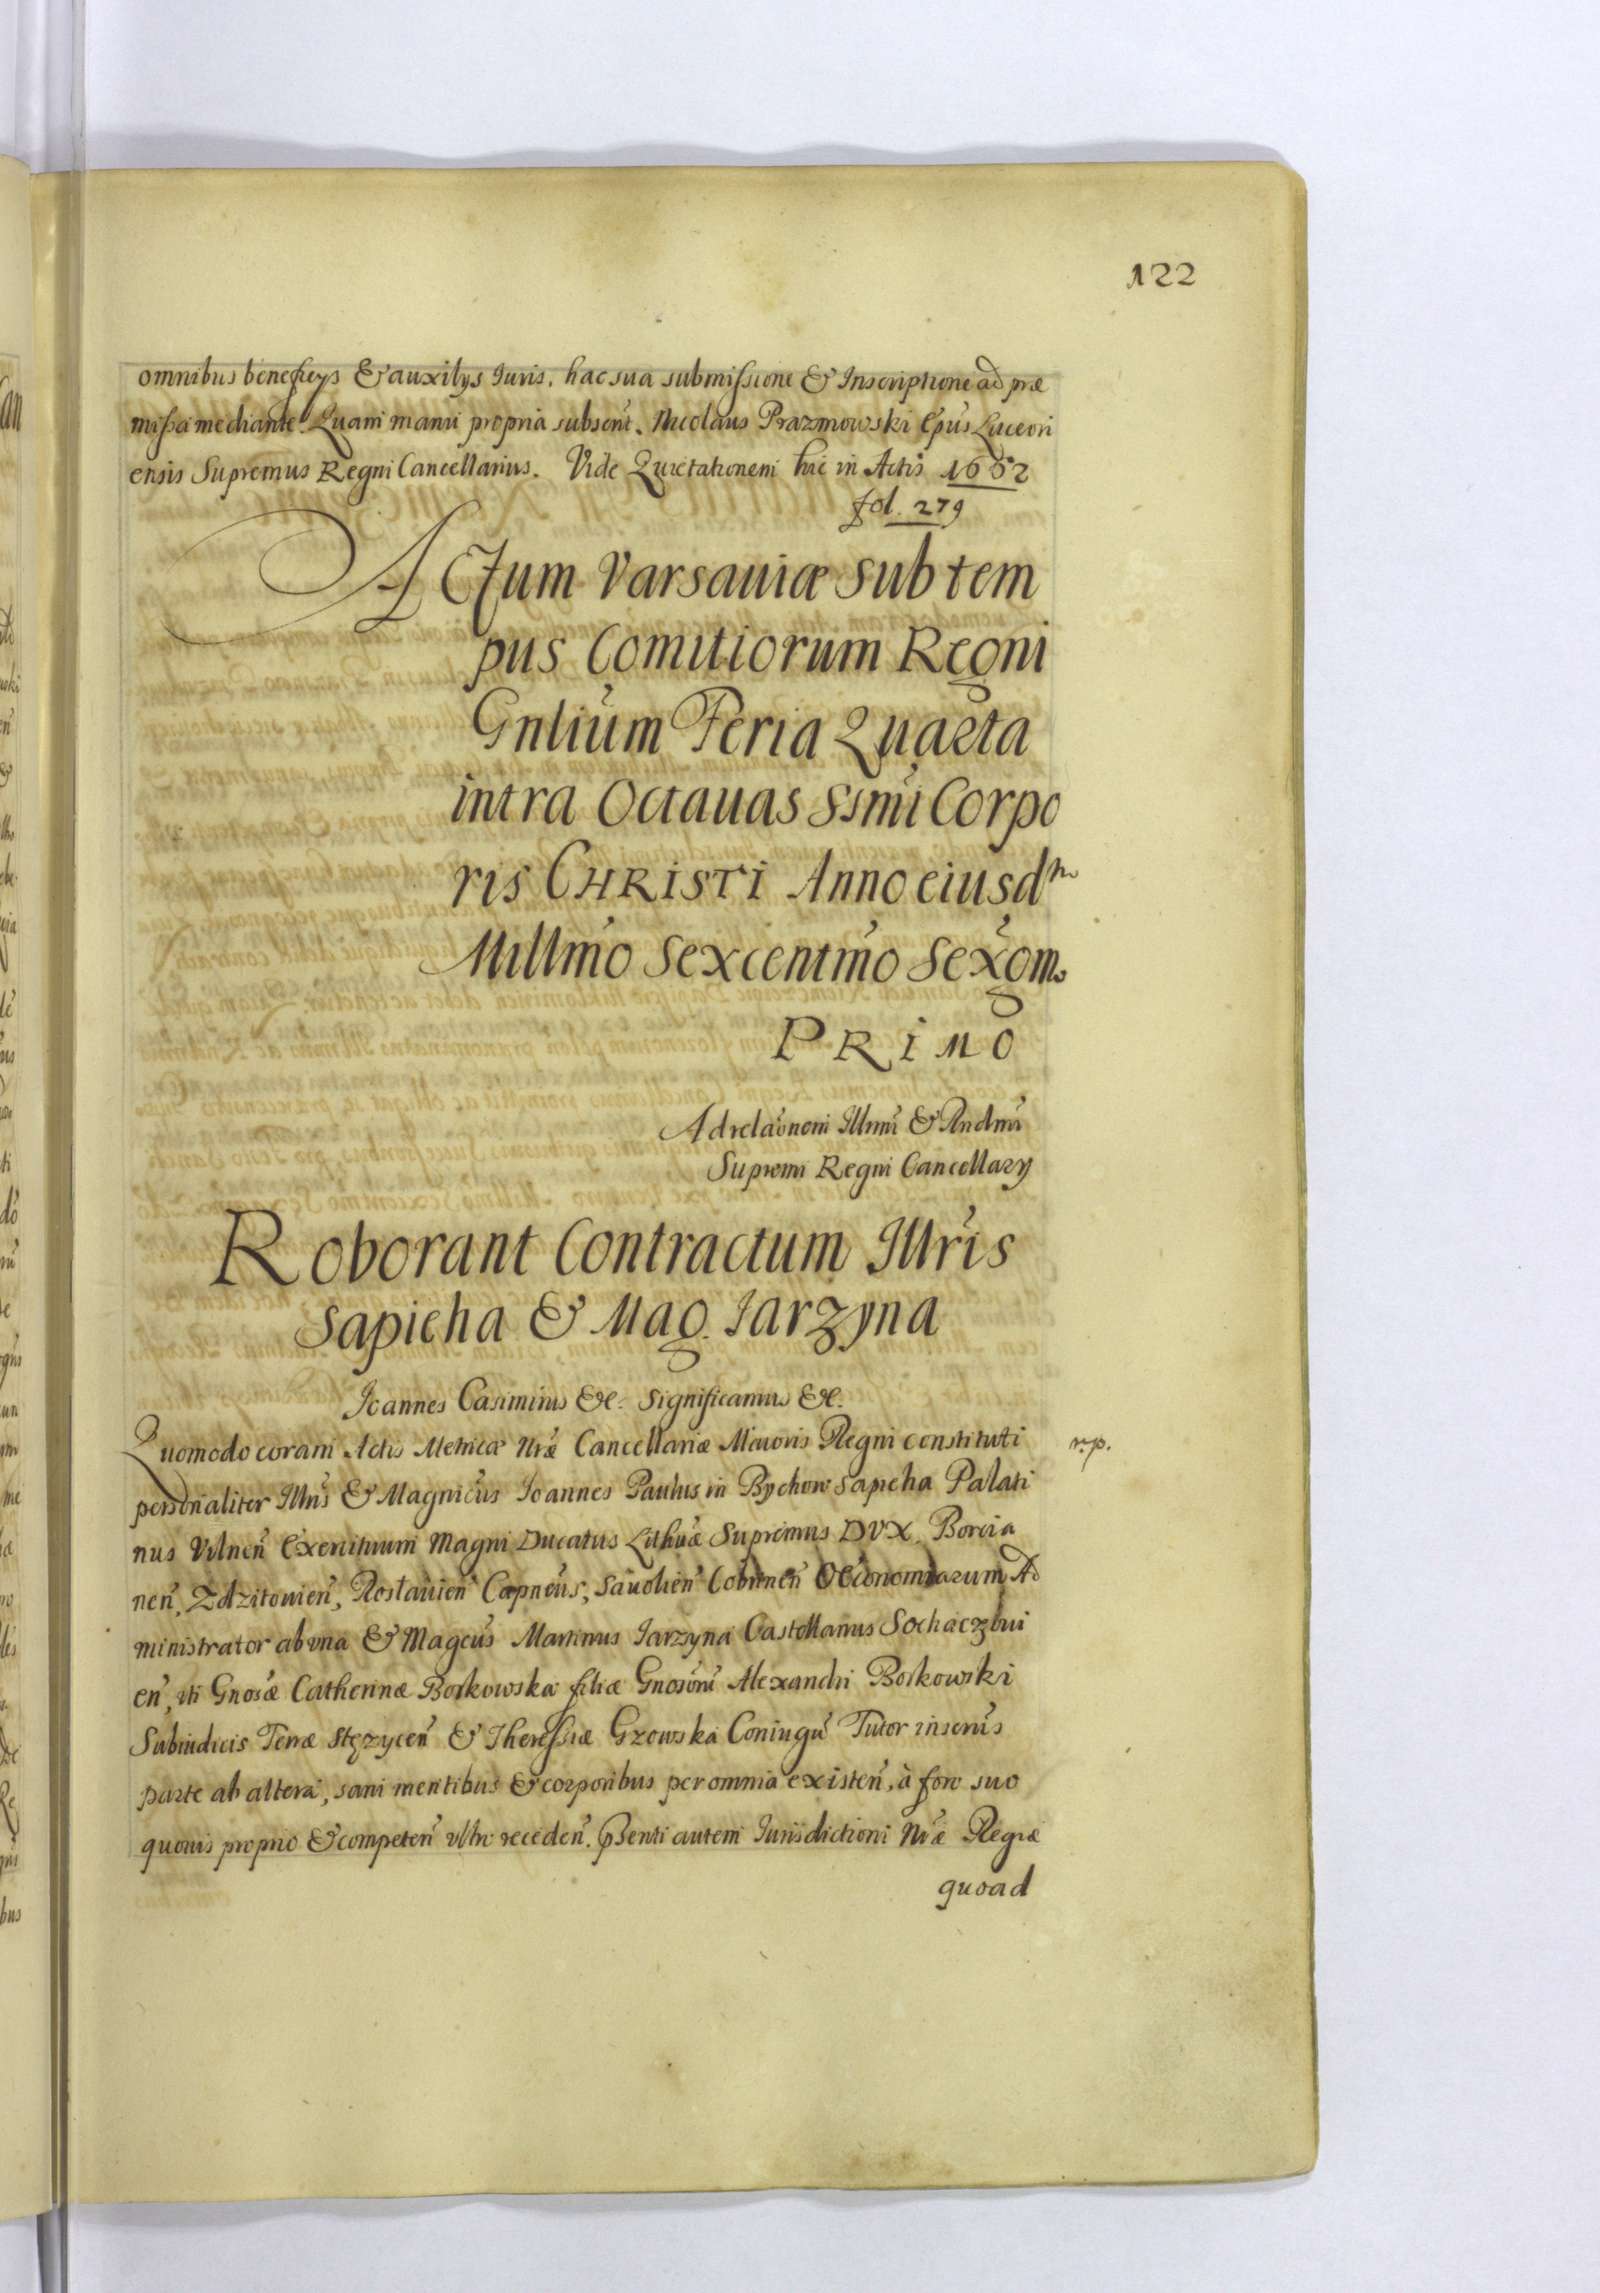 122
omnibus beneficys & auxilys Iuris, hac sua submissione & Inscriptione ad præ
missa mediante. Quam manu propria subscrit. Nicolaus Prazmowski Epus Luceori
ensis Supremus Regni Cancellarius. Vide Quietationem hic in Actis 1662
fol. 279
ACtum Varsaviæ sub tem
pus Comitiorum Regni
Gnlium Feria Quarta
intra Octauas Ssmi Corpo
ris CHRISTI Anno eiusdm
Millmo Sexcentmo Sexgmo
PRIMO
Ad relaonem Illmi & Rndmi
Supremi Regni Cancellary
Roborant Contractum Illris
Sapieha & Mag. Iarzyna
Ioannes Casimirus &c. Significamus &c.
Quomodo coram Actis Metricæ Nræ Cancellariæ Maioris Regni constituti
rp.
personaliter Illris & Magnicus Ioannes Paulus in Bychow Sapieha Palati
nus Vilnen Exercituum Magni Ducatus Lithuæ Supremus DUX, Borcia
nen, Zdzitouien, Rostauien Capneus, Sauolien Cobrinen OEconomiarum Ad
ministrator ab vna & Magcus Martinus Iarzyna Castellanus Sochaczeui
en, uti Gnosæ Catherinæ Borkowska filiæ Gnosoru Alexandri Borkowski
Subiudicis Terræ Stęzycen & Theressiæ Gzowska Coniugu Tutor inscrus
parte ab altera, sani mentibus & corporibus per omnia existen, à foro suo
quouis proprio & competen vltro receden. Pnti autem Iurisdictioni Nræ Regiæ
quoad